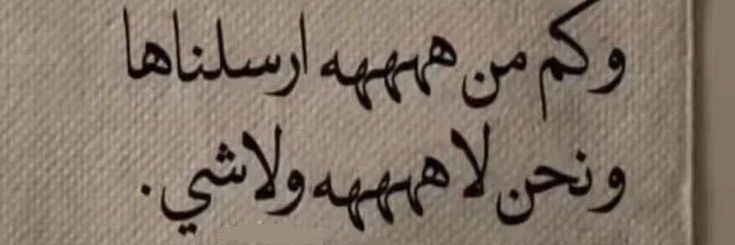 وكم من ههههه ارسلناها
ونحن لا ههههه ولاشي.